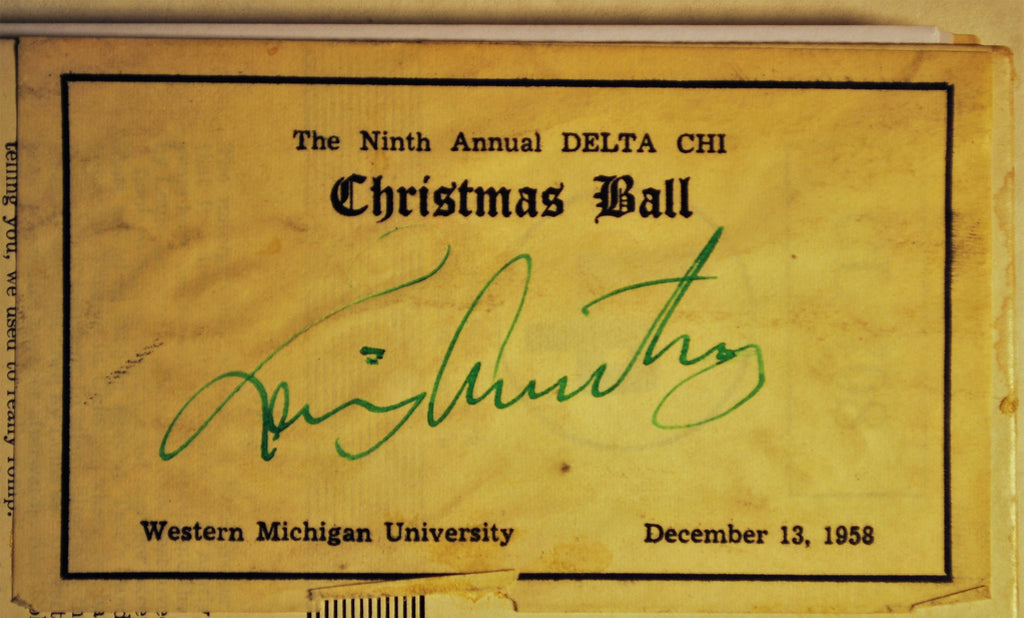 The Ninth Annual DELTA CHI
Christmas Ball
Western Michigan University December 13, 1958
telling you, we used to really romp.